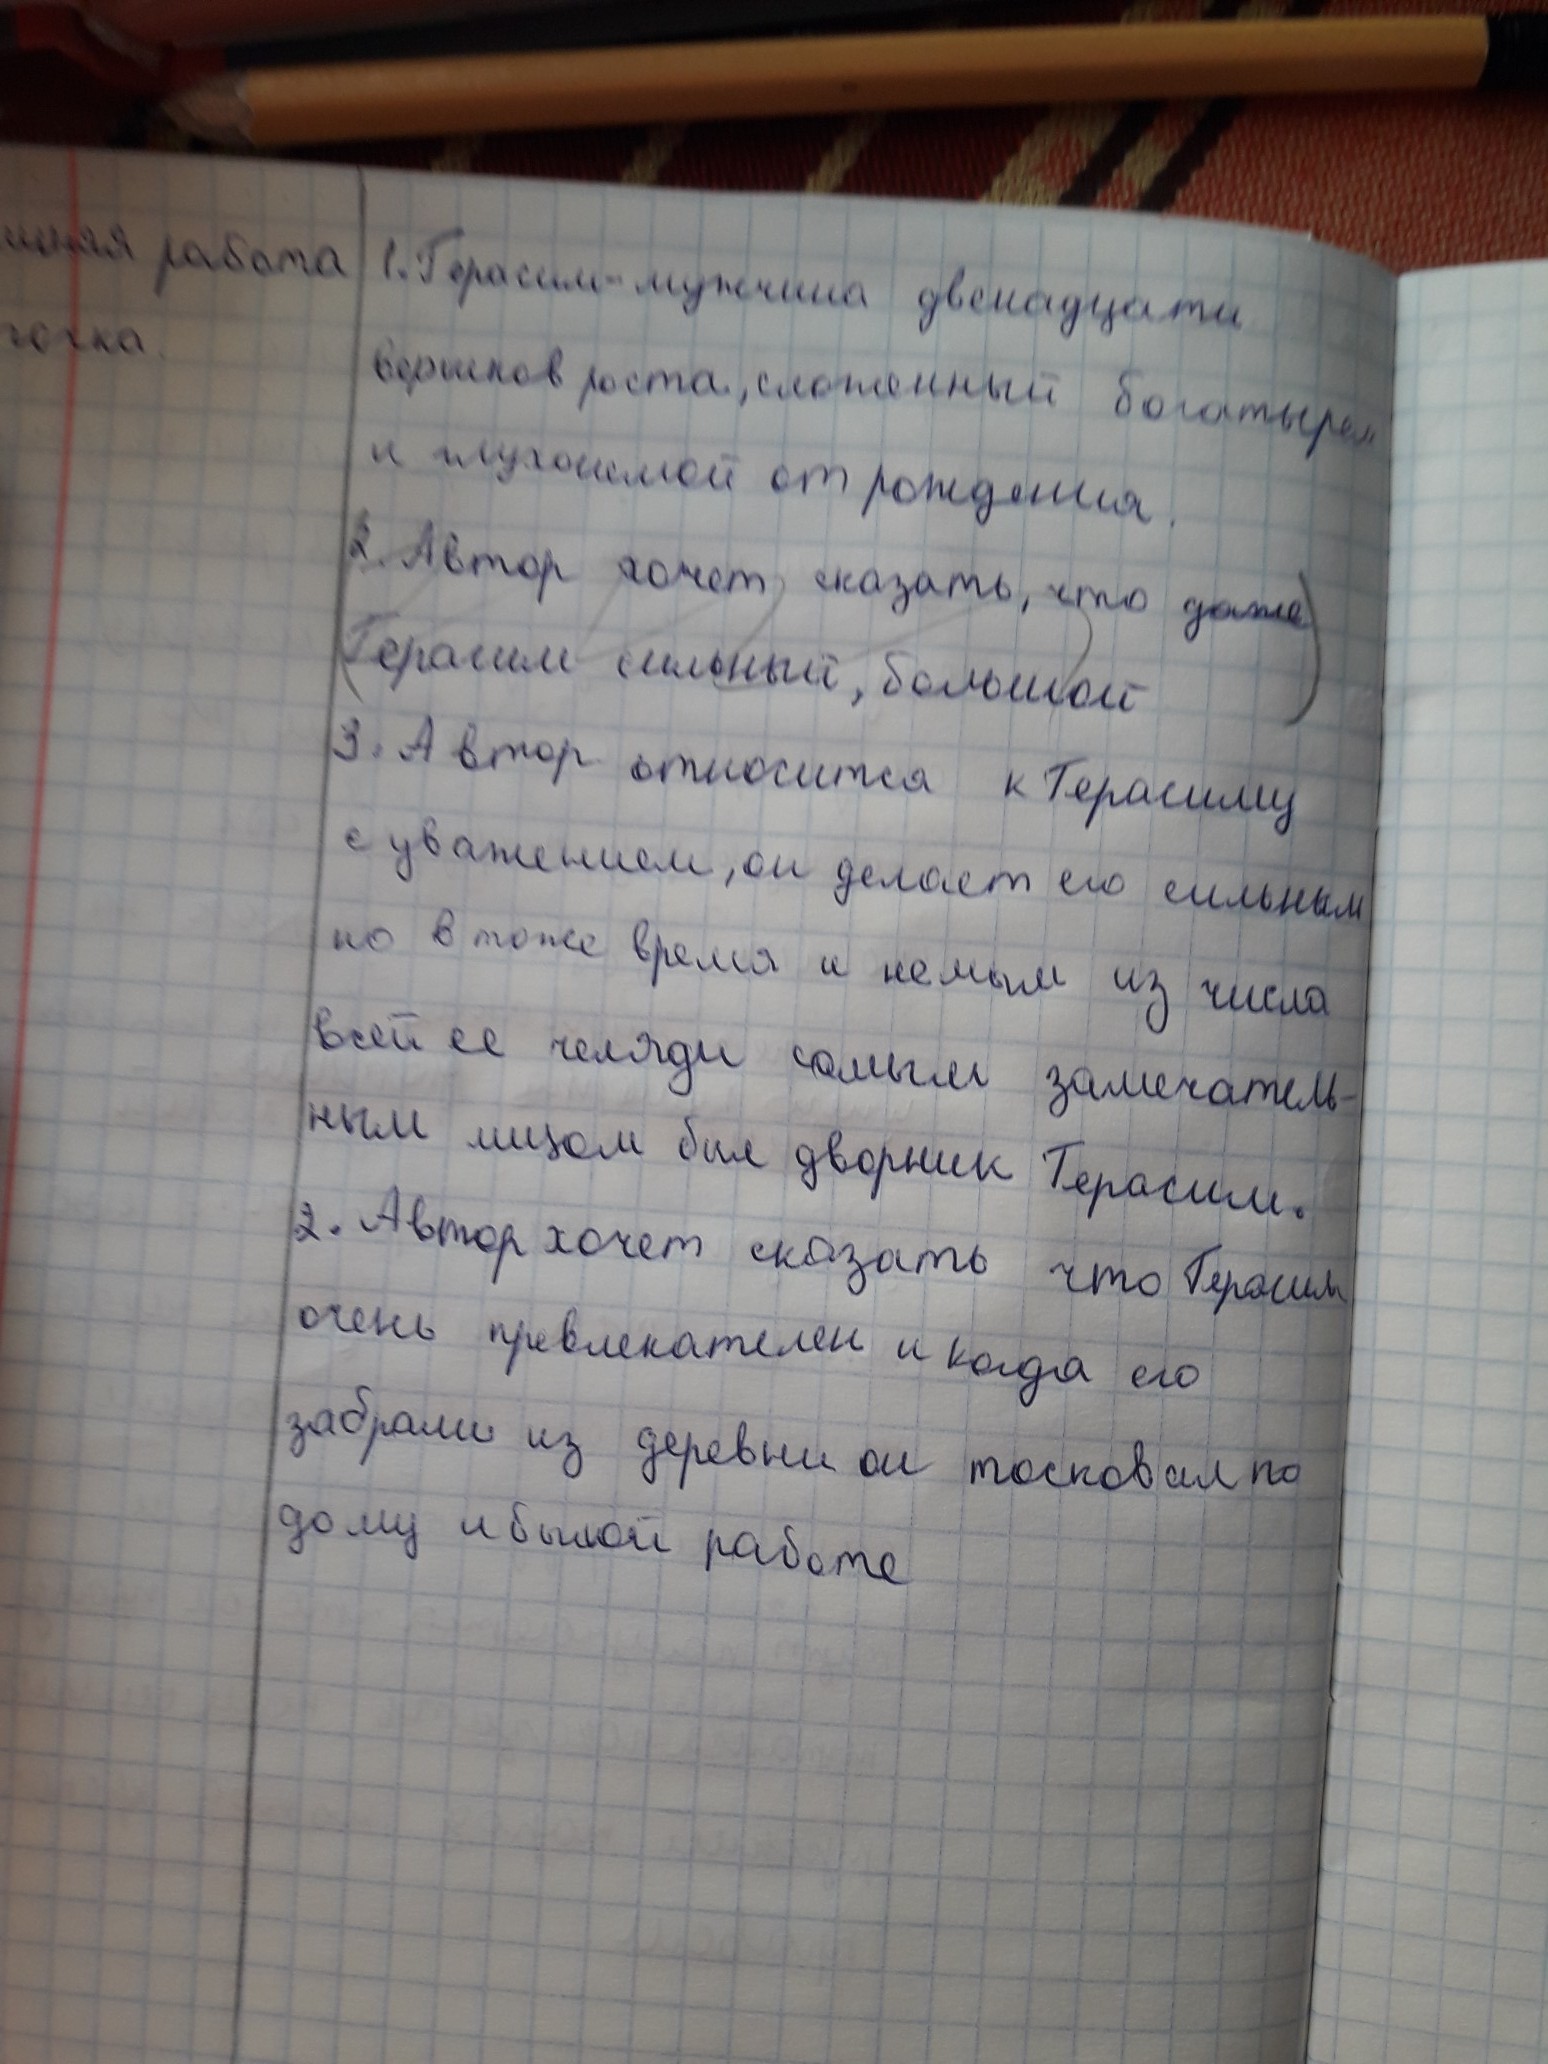 шняя работа
точка.
1. Герасим-мужчина двенадцати
вершков роста, сложенный богатырем
и глухонемой от рождения.
2. Автор хочет сказать, что даже
Герасим сильный, большой
3. Автор относится к Герасиму
с уважением, он делает его сильным
но в тоже время и немым из числа
всей ее челяди самым замечатель-
ным лицом был дворник Герасим.
2. Автор хочет сказать что Герасим
очень превлекателен и когда его
забрали из деревни он тосковал по
дому и былой работе